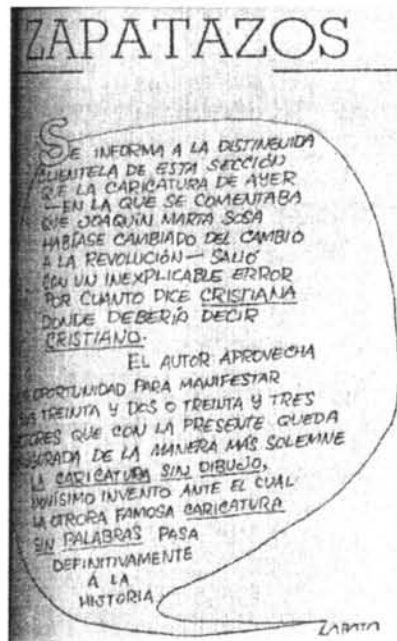 ZAPATAZOS
SE INFORMA A LA DISTINGUIDA
CLIENTELA DE ESTA SECCIÓN
QUE LA CARICATURA DE AYER
—EN LA QUE SE COMENTABA
QUE JOAQUÍN MARTA SOSA
HABÍASE CAMBIADO DEL CAMBIO
A LA REVOLUCIÓN— SALIÓ
CON UN INEXPLICABLE ERROR
POR CUANTO DICE CRISTIANA
DONDE DEBERÍA DECIR
CRISTIANO.
EL AUTOR APROVECHA
OPORTUNIDAD PARA MANIFESTAR
TREINTA Y DOS O TREINTA Y TRES
QUE CON LA PRESENTE QUEDA
DE LA MANERA MÁS SOLEMNE
LA CARICATURA SIN DIBUJO,
NOVÍSIMO INVENTO ANTE EL CUAL
LA OTRORA FAMOSA CARICATURA
SIN PALABRAS PASA
DEFINITIVAMENTE
A LA
HISTORIA
ZAPATA